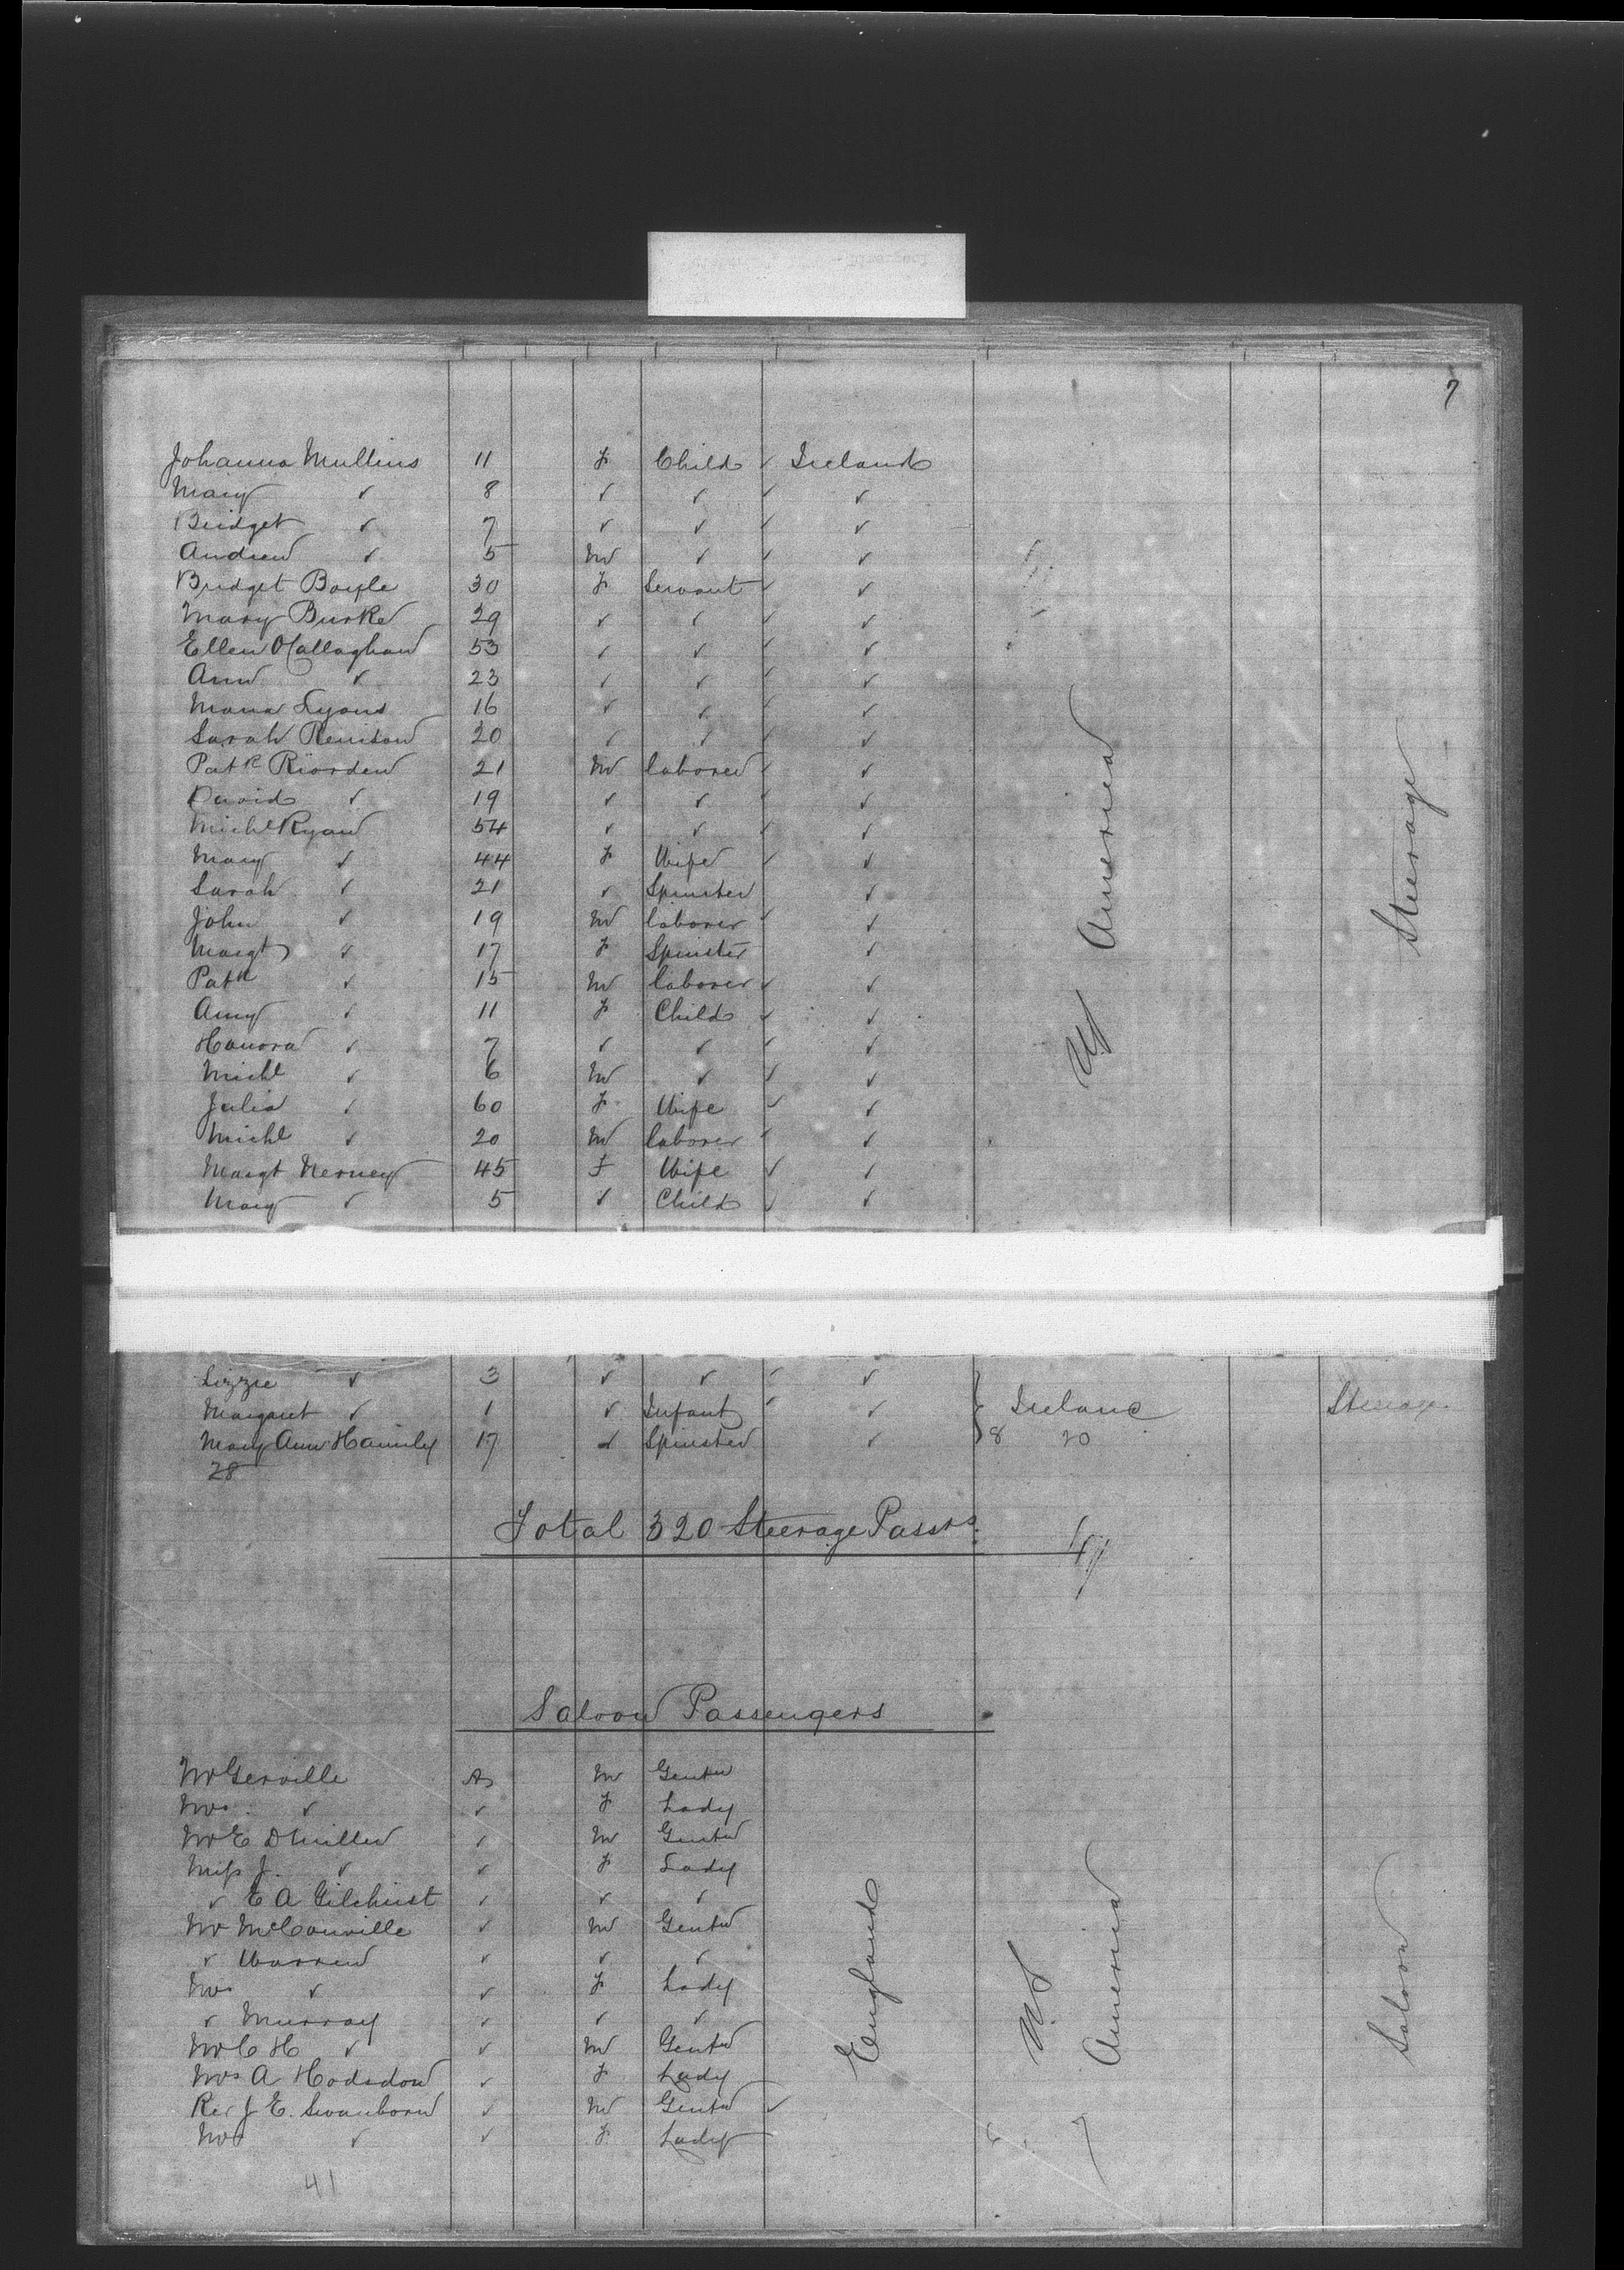 7
Johanna Mullins 11 F Child ✓ Ireland
Mary ✓ 8 ✓ ✓ ✓ ✓
Bridget ✓ 7 ✓ ✓ ✓ ✓
Andrew ✓ 5 M ✓ ✓ ✓
Bridget Boyle 30 F Servant ✓ ✓
Mary Burke 29 ✓ ✓ ✓ ✓
Ellen OCallaghan 53 ✓ ✓ ✓ ✓
Ann ✓ 23 ✓ ✓ ✓ ✓
Maria Lyons 16 ✓ ✓ ✓ ✓
Sarah Renison 20 ✓ ✓ ✓ ✓
Patk Riorden 21 M laborer ✓ ✓
David ✓ 19 ✓ ✓ ✓ ✓
Michl Ryan 54 ✓ ✓ ✓ ✓
Mary ✓ 44 F Wife ✓ ✓
Sarah ✓ 21 ✓ Spinster ✓
John ✓ 19 M laborer ✓ ✓
Margt ✓ 17 F Spinster ✓
Patk ✓ 15 M laborer ✓ ✓
Amy ✓ 11 F Child ✓ ✓
Hanora ✓ 7 ✓ ✓ ✓ ✓
Michl ✓ 6 M ✓ ✓ ✓
Julia ✓ 60 F Wife ✓ ✓
Michl ✓ 20 M laborer ✓ ✓
Margt Nerney 45 F Wife ✓ ✓
Mary ✓ 5 ✓ Child ✓ ✓
US America
Steerage
Lizzie ✓ 3 ✓ ✓ ✓ ✓
Margaret ✓ 1 ✓ Infant ✓ ✓ Ireland Steerage
Mary Ann 17 ✓ Spinster ✓ 8 20
28
Total 320 Steerage Passrs
Saloon Passengers
Mr Gerville A M Gentn
Mrs ✓ ✓ F Lady
Mr E D Miller ✓ M Gentn
Miss J. ✓ ✓ F Lady
✓ E A Gilchrist ✓ ✓ ✓
Mr McConville ✓ M Gentn
✓ Warren ✓ ✓ ✓
Mrs ✓ ✓ F Lady
✓ Murray ✓ ✓ ✓
Mr C H ✓ ✓ M Gentn
Mrs A Hodsdon ✓ F Lady
Rev J E. Swanborn ✓ M Gentn ✓
Mrs ✓ ✓ F Lady
England
US America
Saloon
41